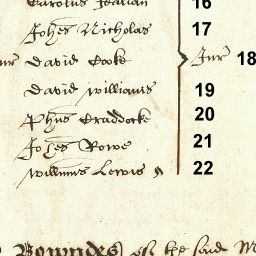 Carolus Jealian 16
Johes Nicholas 17
David Cooke Jur 18
David Williams 19
Phus Craddocke 20
Johes Rowe 21
Willmus Lewis 22
Bowndes of the said M